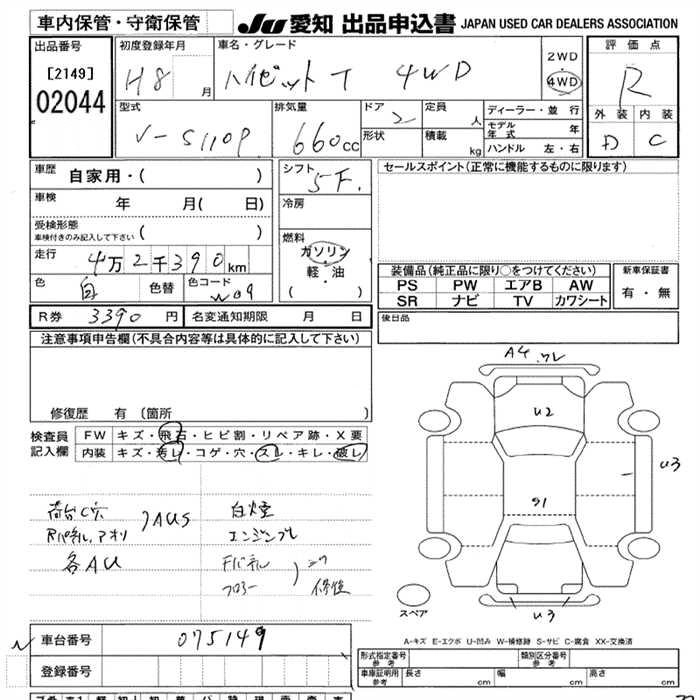 車内保管・守衛保管
JU愛知 出品申込書 JAPAN USED CAR DEALERS ASSOCIATION
出品番号
[2149]
02044
初度登録年月
H8 月
車名・グレード
ハイゼット T 4WD
2WD
4WD
評価点
R
外装 内装
D C
型式
V-S110P
排気量
660cc
ドア
2
形状
定員
人
積載
kg
ディーラー・並行
モデル年式 年
ハンドル 左・右
車歴
自家用・( )
車検
年 月( 日)
受検形態
車検付きのみ記入して下さい ( )
走行
4万2千390km
色
白
色替
色コード
W09
シフト
5F.
冷房
燃料
ガソリン
軽・油
( )
セールスポイント(正常に機能するものに限ります)
装備品(純正品に限り○をつけてください)
PS PW エアB AW
SR ナビ TV カワシート
新車保証書
有・無
R券 3390円
名変通知期限 月 日
後日品
注意事項申告欄(不具合内容等は具体的に記入して下さい)
修復歴 有 (箇所 )
検査員
記入欄
FW キズ・飛石・ヒビ割・リペア跡・X要
内装 キズ・汚レ・コゲ・穴・スレ・キレ・破レ
荷台C穴
Rパネル、アオリ
)AUS
各AU
白煙
エンジンブレ
Fパネル
フロアー
)
修復
A4 ワレ
U2
U3
S1
U3
スペア
A-キズ E-エクボ U-凹み W-補修跡 S-サビ C-腐食 XX-交換済
車台番号
075149
登録番号
形式指定番号
参考
類別区分番号
参考
車庫証明用
参考
長さ cm
幅 cm
高さ cm